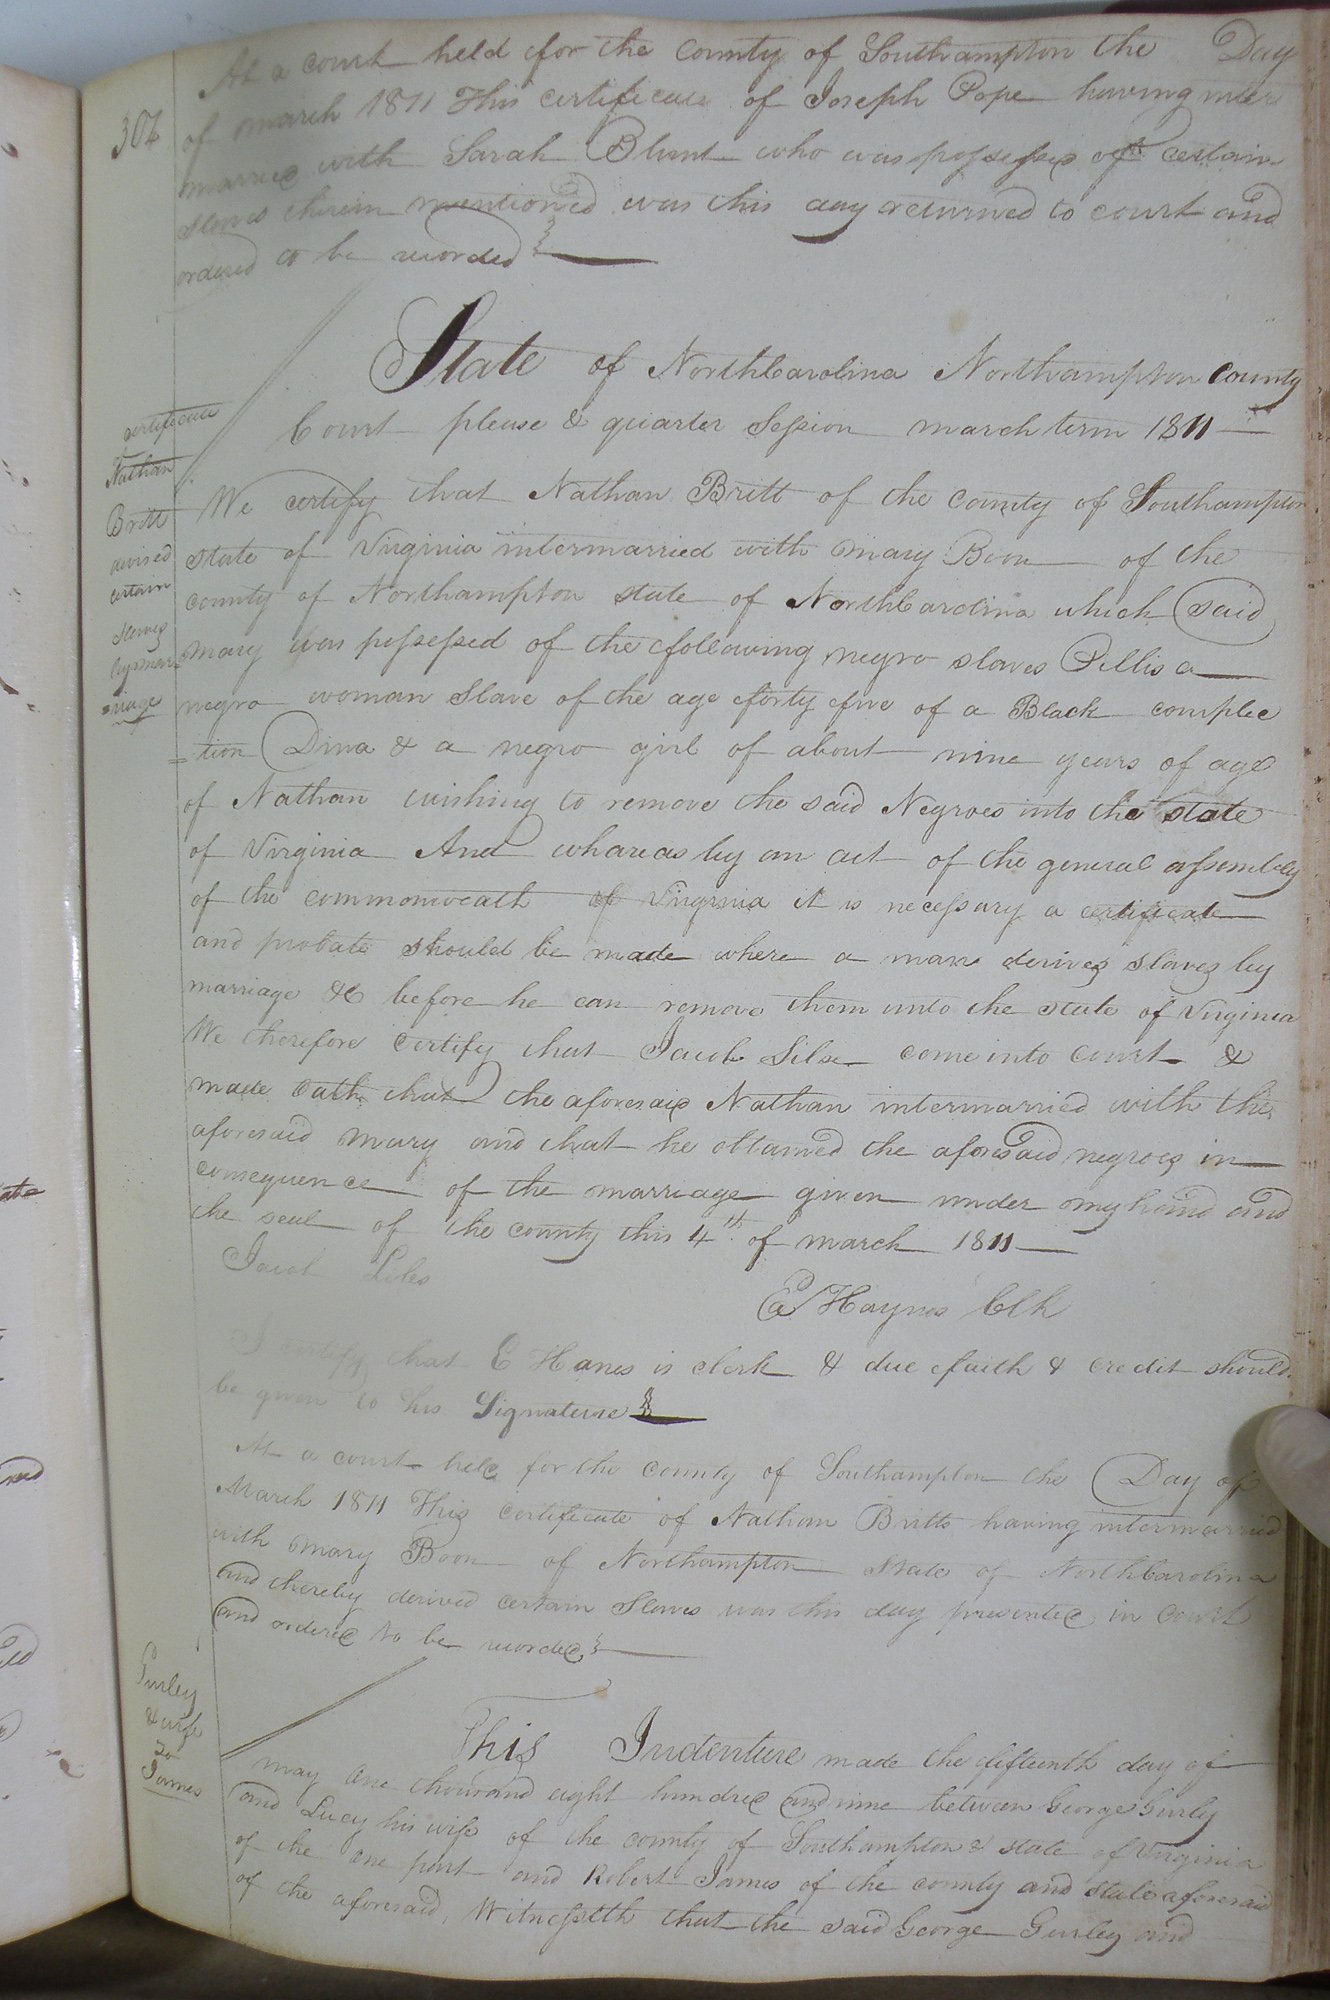 304
At a court held for the County of Southampton the Day
of march 1811 This certificate of Joseph Pope having inter
married with Sarah Blunt who was possessed of certain
slaves therein mentioned was this day returned to court and
ordered to be recorded
State of NorthCarolina Northampton County
Court please & quarter Session march term 1811
certificate
Nathan
Britt
derived
certain
slaves
by mar
=riage
We certify that Nathan Britt of the county of Southampton
state of Virginia intermarried with mary Boon of the
county of Northampton state of NorthCarolina which said
mary was possessed of the following negro slaves Pillis a
negro woman Slave of the age forty five of a Black complec
=tion Dina & a negro girl of about nine years of age
of Nathan wishing to remove the said Negroes into the state
of Virginia And whareas by an act of the general assembly
of the commonweath of Virginia it is necessary a certificate
and probate should be made where a man derives slaves by
marriage &c before he can remove them unto the state of Virginia
We therefore certify that Jacob come into court &
made oath that the aforesaid Nathan intermarried with the
aforesaid mary and that he obtained the aforesaid negroes in
consequence of the marriage given under my hand and
the seal of the county this 4th of march 1811
Liles
E Haynes Clk
I certify that E Hanes is clerk & due faith & credit should
be given to his Signature
At a court held for the county of Southampton the Day of
March 1811 This certificate of Nathan Britts having intermarried
with mary Boon of Northampton State of NorthCarolina
and thereby derived certain Slaves was this day presented in Court
and ordered to be recorded
Gurley
& wife
To
James
This Indenture made the fifteenth day of
may one thousand eight hundred and nine between George Gurley
and Lucy his wife of the county of Southampton & state of Virginia
of the one part and Robert James of the county and state aforesaid
of the aforesaid, Witnesseth that the said George Gurley and